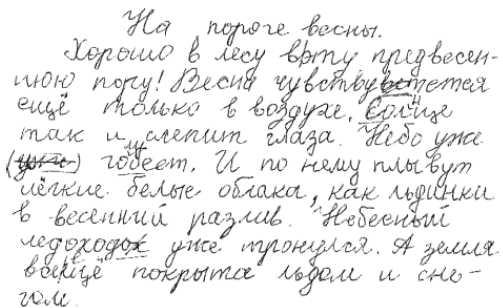 На пороге весны.
Хорошо в лесу врту предвесен-
нюю пору! Весна чувствуется
ещё только в воздухе. Солце
так и слепит глаза. Небо уже
(уже) гобеет. И по нему плывут
лёгкие белые облака, как льдинки
в весенний разлив. Небесный
ледоходох уже тронулся. А земля
вещё покрыта льдом и сне-
гом.